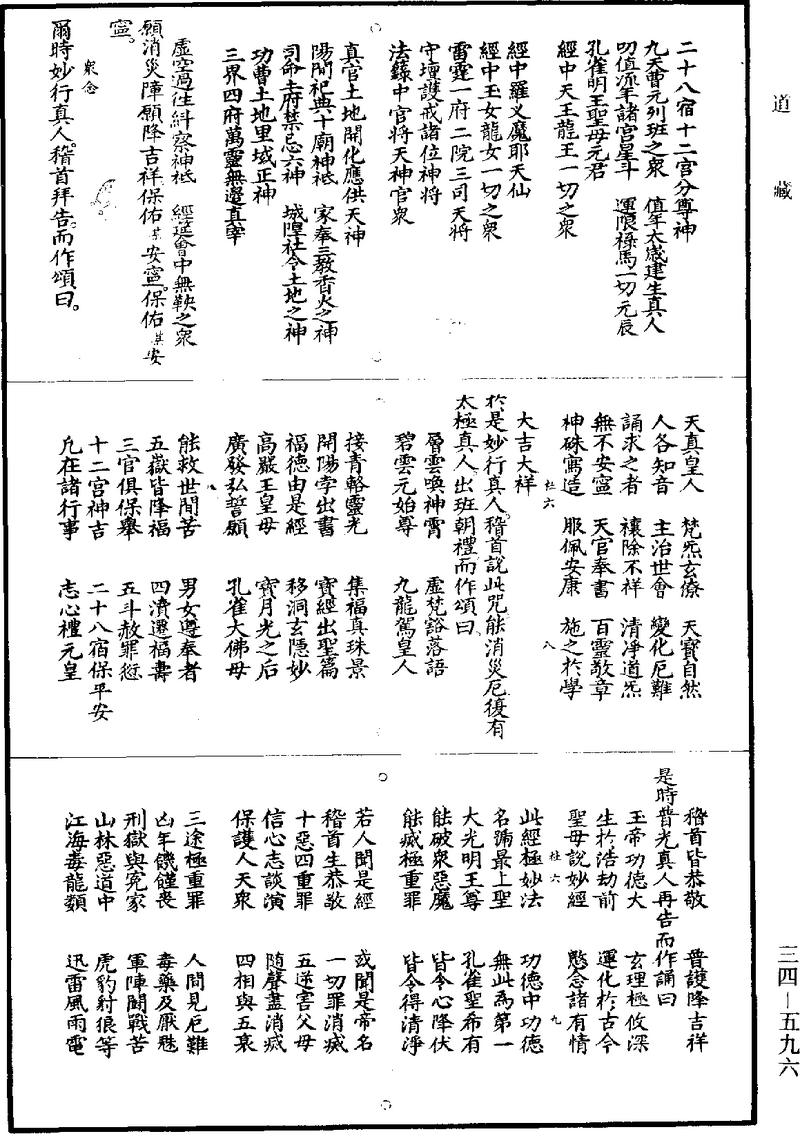 道藏
二十八宿十二宮分尊神
九天曹元列班之衆　值年太歲建生真人
叨值流年諸宮星斗　運限祿馬一切元辰
孔雀明王聖母元君
經中天王龍王一切之衆
經中羅义魔耶天仙
經中玉女龍女一切之衆
雷霆一府二院三司天將
守壇護戒諸位神將
法籙中官將天神官衆
真官土地開化應供天神
陽間祀典十廟神祗　家奉三教香火之神
司命土府禁忌六神　城隍社令土地之神
功曹土地里域正神
三界四府萬靈無邊真宰
虛空過往糾察神祗　經筵會中無鞅之衆
願消災障願降吉祥保佑某安寧。保佑某安
寧。
衆念
爾時妙行真人。稽首拜告。而作頌曰。
天真皇人　梵炁玄僚　天寶自然
人各知音　主治世會　變化厄難
誦求之者　禳除不祥　清淨道炁
無不安寧　天官奉書　百靈敬章
神硃寫造　服佩安康　施之於學
杜六　八
大吉大祥
於是妙行真人。稽首說此咒。能消災厄。復有
太極真人出班朝禮。而作頌曰。
層雲喚神霄　虛梵谿落語
碧雲元始尊　九龍駕皇人
接青輅靈光　集福真珠景
開陽孛出書　寶經出聖篇
福德由是經　移洞玄隱妙
高嚴王皇母　寶月光之后
廣發弘誓願　孔雀大佛母
能救世間苦　男女遵奉者
五嶽皆降福　四瀆還福壽
三官俱保舉　五斗赦罪愆
十二宮神吉　二十八宿保平安
凡在諸行事　志心禮元皇
稽首皆恭敬　普護降吉祥
是時普光真人再告而作誦曰
玉帝功德大　玄理極攸深
生於浩劫前　運化於古今
聖母說妙經　愍念諸有情
杜六　九
此經極妙法　功德中功德
名號最上聖　無此為第一
大光明王尊　孔雀聖希有
能破衆惡魔　皆令心降伏
能滅極重罪　皆令得清淨
若人聞是經　或聞是帝名
稽首生恭敬　一切罪消滅
十惡四重罪　五逆害父母
信心志談演　隨聲盡消滅
保護人天衆　四相與五衰
三途極重罪　人間見厄難
凶年饑饉喪　毒藥及厭魅
刑獄與冤家　軍陣鬪戰苦
山林惡道中　虎豹豺狼等
江海毒龍類　迅雷風雨電
三四—五九六